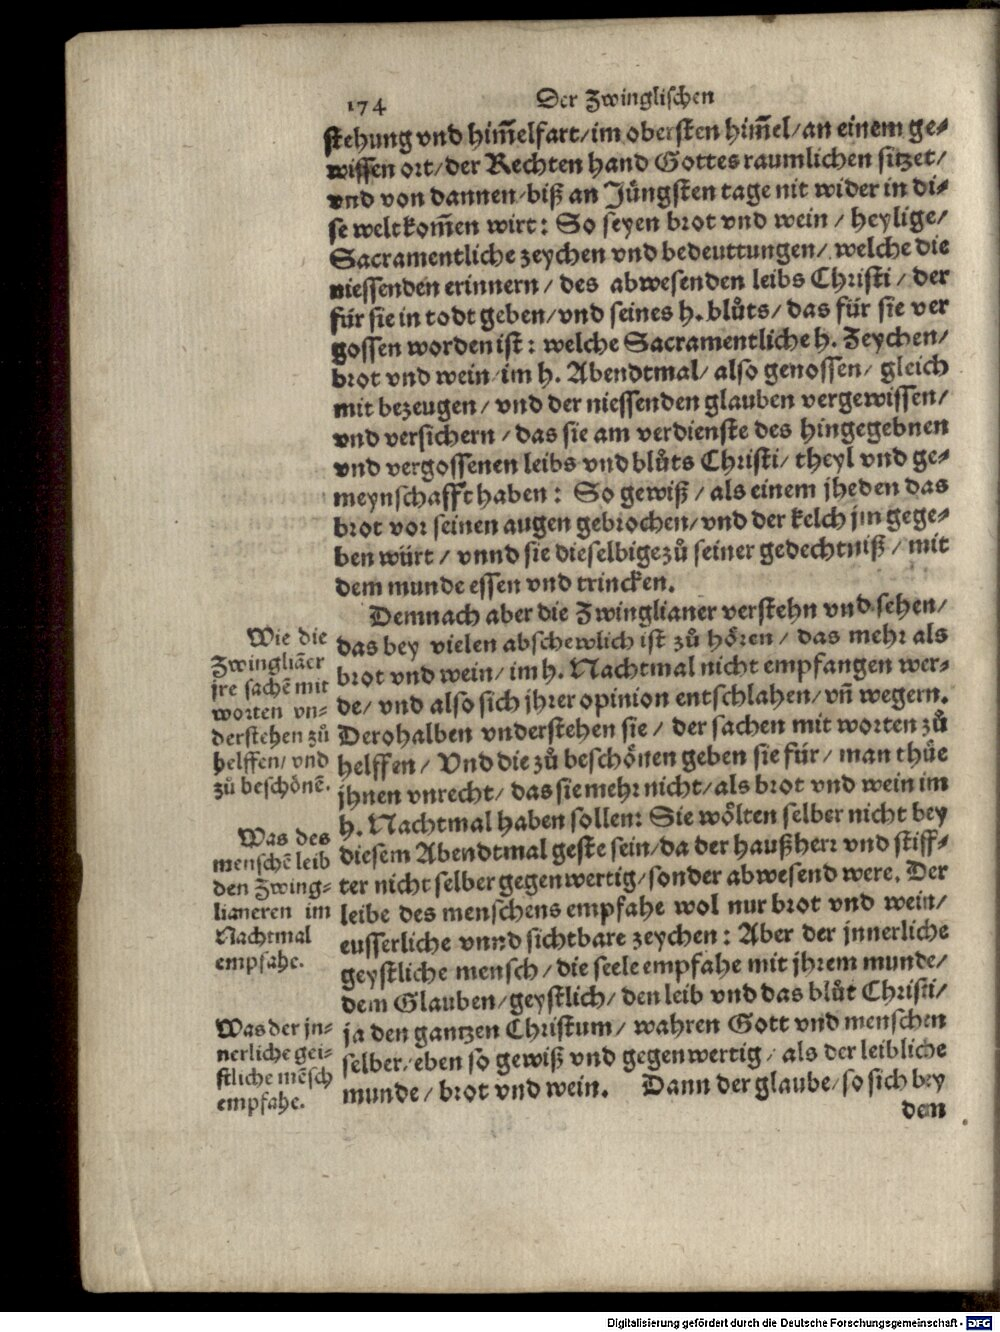 174 Der Zwinglischen
stehung vnd him̃elfart/ im obersten him̃el/ an einem ge⸗
wissen ort/ der Rechten hand Gottes raumlichen sitzet/
vnd von dannen/ biß an Jüngsten tage nit wider in di⸗
se welt kom̃en wirt: So seyen brot vnd wein / heylige/
Sacramentliche zeychen vnd bedeuttungen/ welche die
niessenden erinnern / des abwesenden leibs Christi / der
für sie in todt geben/ vnd seines h. blůts/ das für sie ver
gossen worden ist: welche Sacramentliche h. Zeychen/
brot vnd wein/ im h. Abendtmal/ also genossen/ gleich
mit bezeugen / vnd der niessenden glauben vergewissen/
vnd versichern / das sie am verdienste des hingegebnen
vnd vergossenen leibs vnd blůts Christi/ theyl vnd ge⸗
meynschafft haben: So gewiß / als einem jheden das
brot vor seinen augen gebrochen/ vnd der kelch jm gege⸗
ben würt / vnnd sie dieselbige zů seiner gedechtniß / mit
dem munde essen vnd trincken.
Demnach aber die Zwinglianer verstehn vnd sehen/
das bey vielen abschewlich ist zů hören / das mehr als
brot vnd wein/ im h. Nachtmal nicht empfangen wer⸗
de/ vnd also sich jhrer opinion entschlahen/ vñ wegern.
Derohalben vnderstehen sie / der sachen mit worten zů
helffen / Vnd die zů beschönen geben sie für / man thůe
jhnen vnrecht/ das sie mehr nicht/ als brot vnd wein im
h. Nachtmal haben sollen: Sie wölten selber nicht bey
diesem Abendtmal geste sein/ da der haußherr vnd stiff⸗
ter nicht selber gegenwertig/ sonder abwesend were. Der
leibe des menschens empfahe wol nur brot vnd wein/
eusserliche vnnd sichtbare zeychen: Aber der jnnerliche
geystliche mensch / die seele empfahe mit jhrem munde/
dem Glauben/ geystlich/ den leib vnd das blůt Christi/
ja den gantzen Christum/ wahren Gott vnd menschen
selber/ eben so gewiß vnd gegenwertig/ als der leibliche
munde / brot vnd wein. Dann der glaube/ so sich bey
den
Wie die
Zwingliãer
jre sachẽ mit
worten vn⸗
derstehen zů
helffen/ vnd
zů beschönẽ.
Was des
menschẽ leib
den Zwing⸗
lianeren im
Nachtmal
empfahe.
Was der jn⸗
nerliche gei⸗
stliche mẽsch
empfahe.
Digitalisierung gefördert durch die Deutsche Forschungsgemeinschaft - DFG